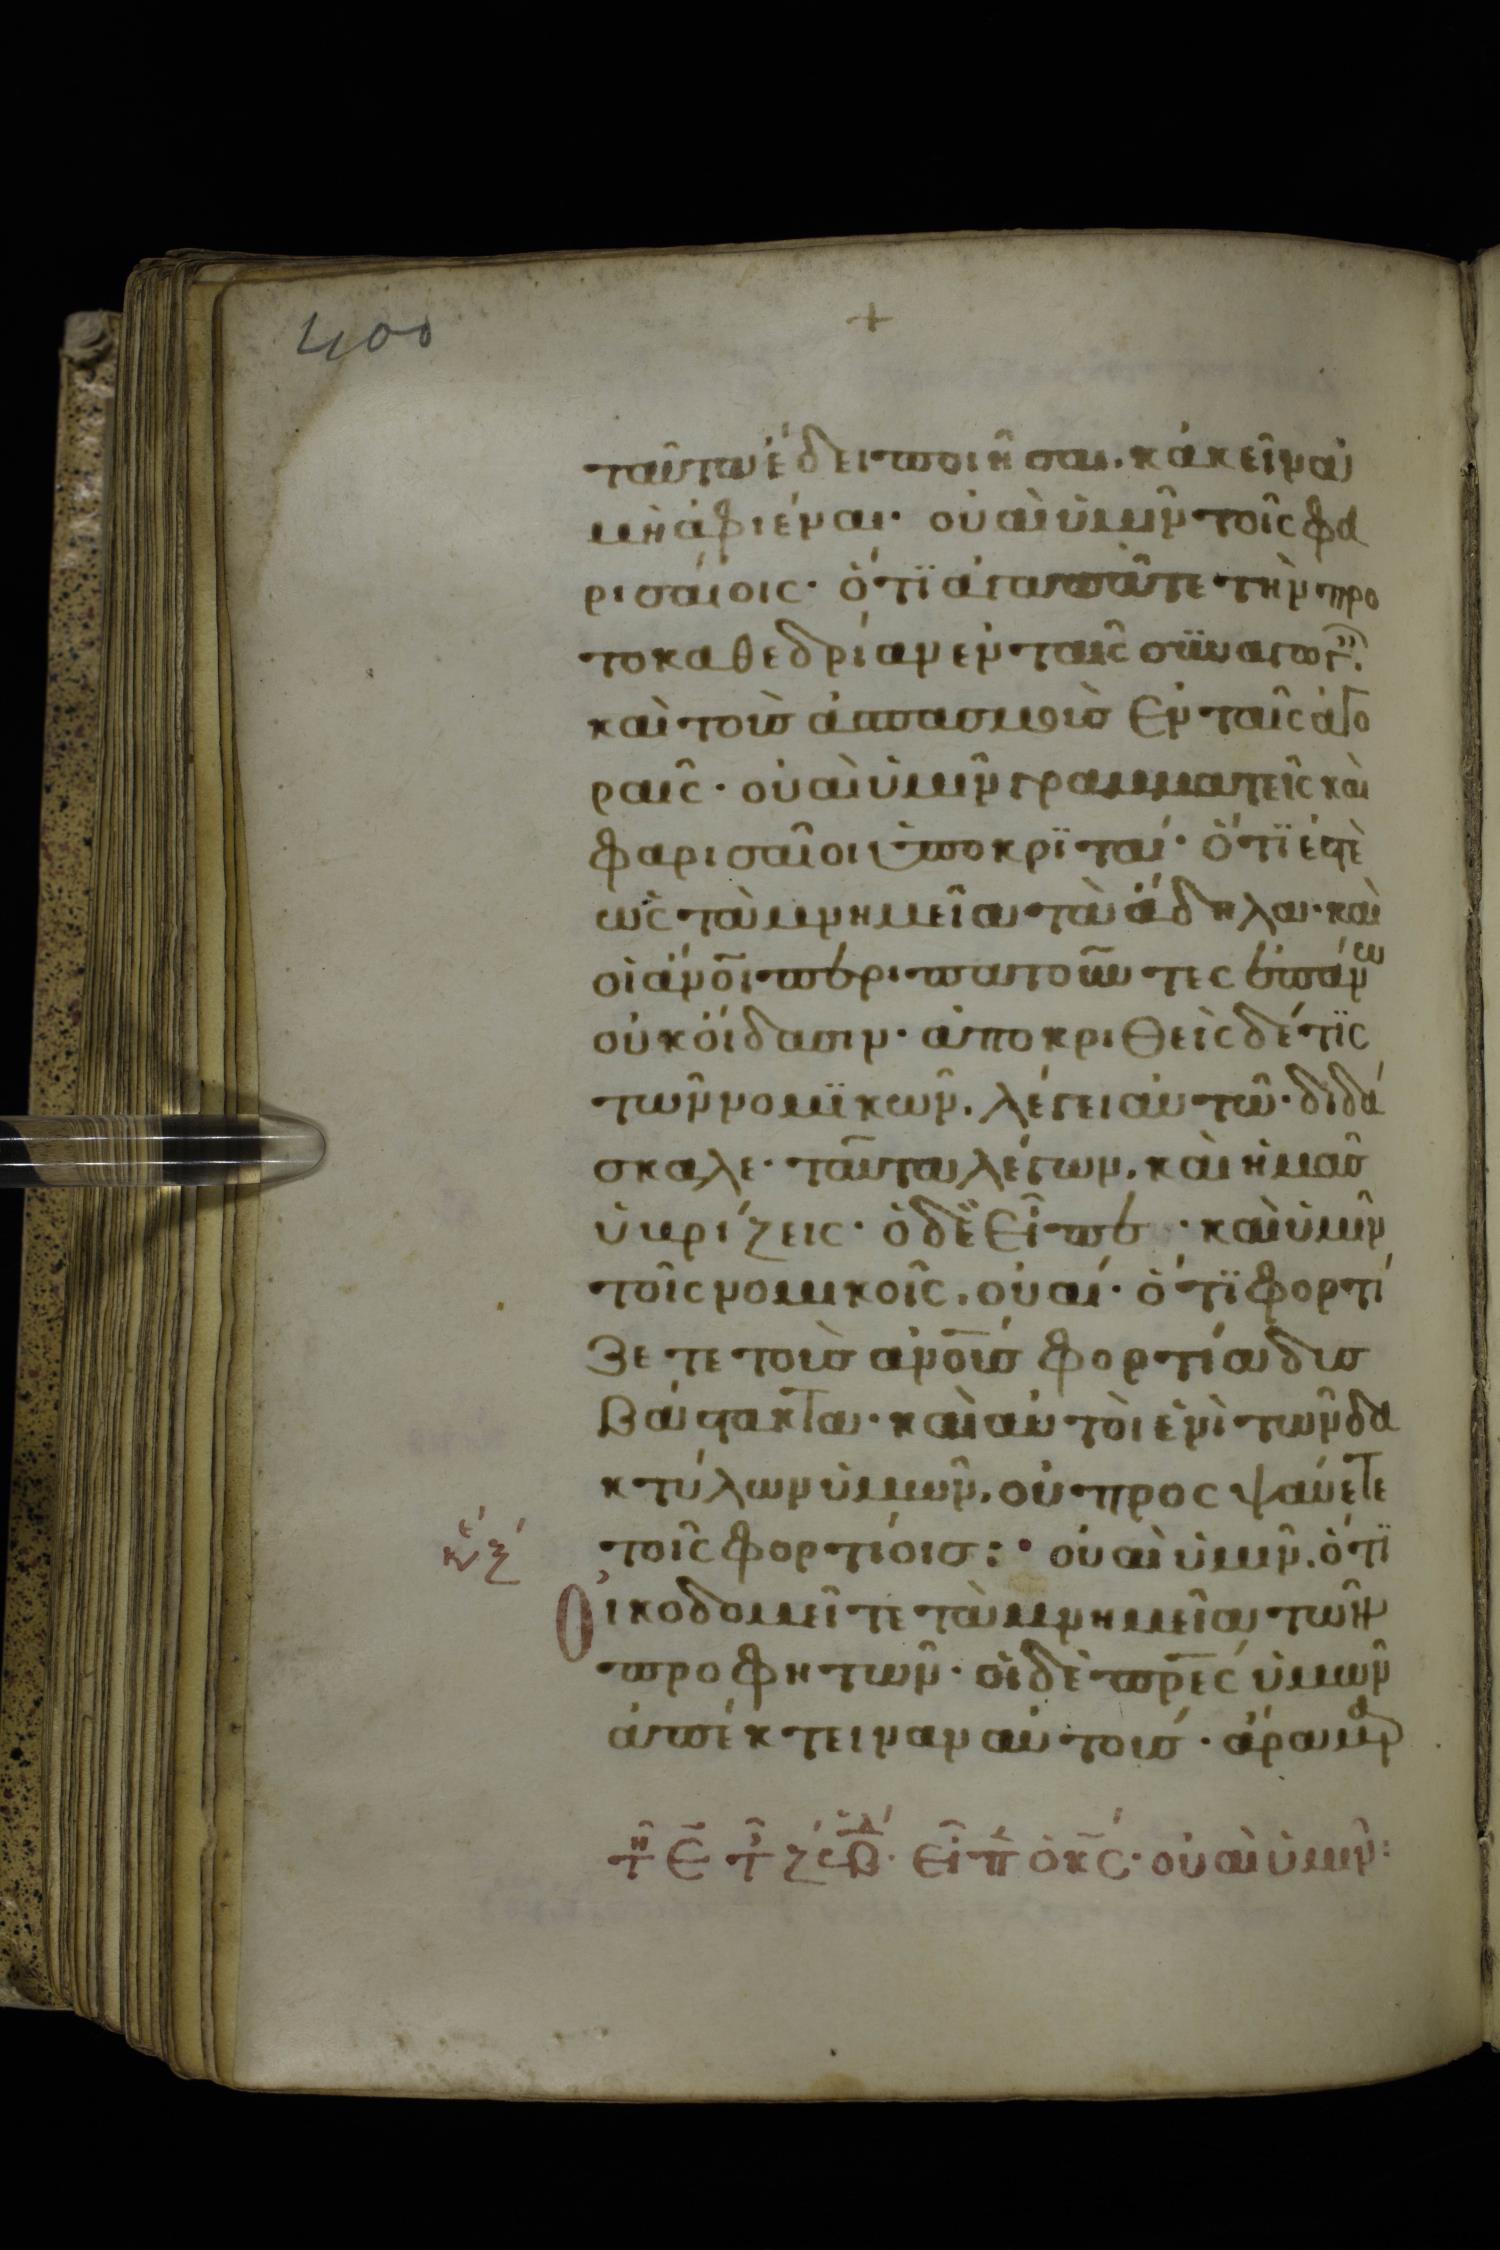 400
+
ταῦτα ἔδει ποιῆσαι. κἀκεῖνα
μὴ ἀφιέναι· οὐαὶ ὑμῖν τοῖς φα
ρισαίοις· ὅτϊ ἀγαπᾶτε τὴν προ
τοκαθεδρίαν ἐν ταῖς συναγωγ
καὶ τοὺσ ἀσπασμοὺσ ἐν ταῖς ἀγο
ραῖς· οὐαὶ ὑμῖν γραμματεῖς καὶ
φαρισαῖοι ὑποκρϊταί· ὅτϊ ἐστὲ
ὡς τὰ μνημεῖα τὰ ἄδηλα· καὶ
οἱ ἄν̅ο̅ι περιπατοῦντες ἐπάνω
οὐκ οἴδασιν· ἀποκριθεὶς δέ τϊς
τῶν νομϊκῶν. λέγει αὐτῶ· διδά
σκαλε· ταῦτα λέγων. καὶ ἡμᾶσ
ὑβρίζεις· ὁ δὲ εἶπε· καὶ ὑμῖν
τοῖς νομικοῖς. οὐαί· ὅτϊ φορτί
ζετε τοὺσ ἀν̅ο̅υσ φορτία δυσ
βάστακτα· καὶ αὐτοὶ ἑνὶ τῶν δα
κτύλων ὑμῶν. οὐ προςψαύετε
τοῖς φορτίοισ: · οὐαὶ ὑμῖν. ὅτϊ
οἰκοδομεῖτε τὰ μνημεῖα τῶν
προφητῶν· οἱ δὲ π̅ρ̅ε̅ς ὑμῶν
ἀπέκτειναν αὐτούσ· ἄρα μρ
εἶπ ὁ κ̅ς· οὐαὶ ὑμῖν: